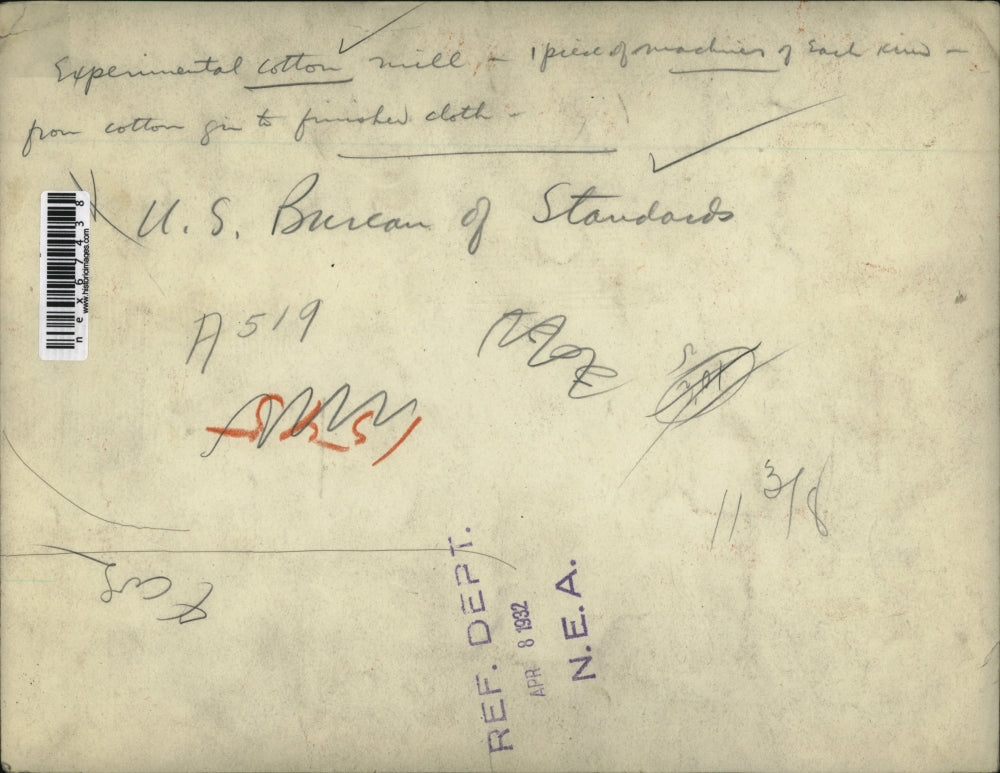 Experimental cotton mill - 1 piece of machines of each kind -
from cotton gin to finished cloth -
U. S. Bureau of Standards
nex67438
www.historicimages.com
A519
11 3/8
REF. DEPT.
APR 8 1932
N. E. A.